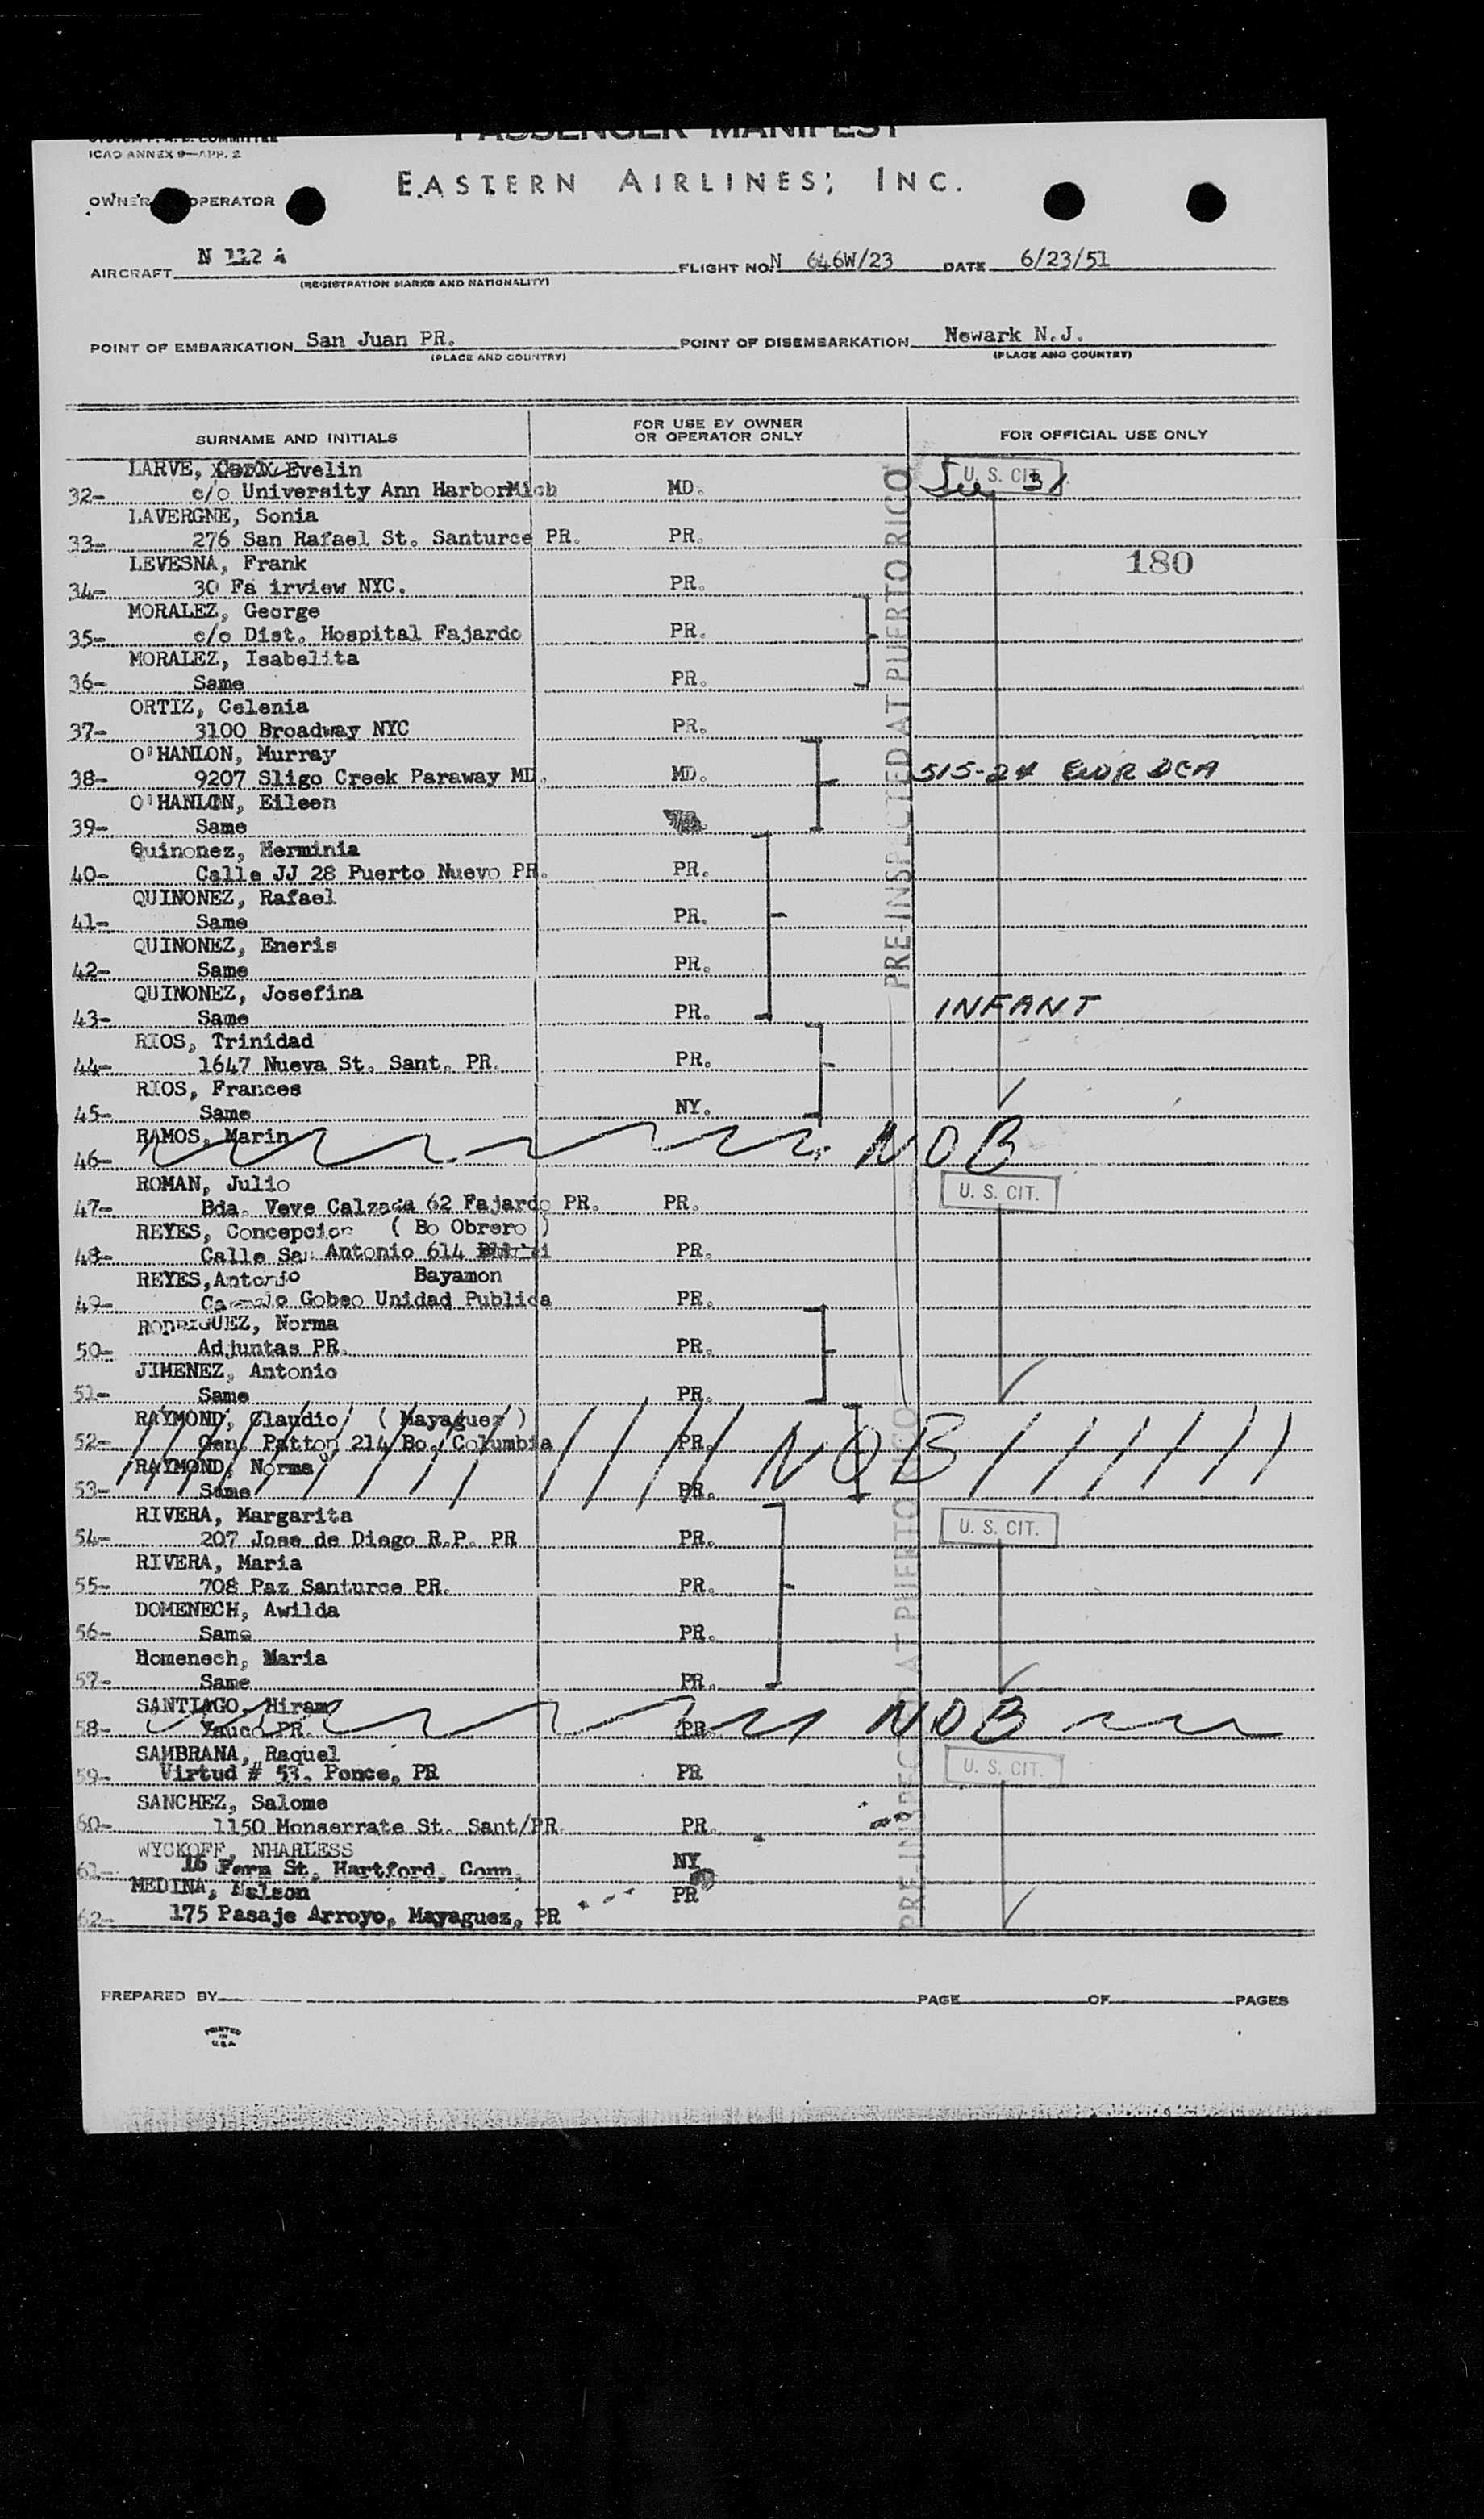 PASSENGER MANIFEST
ICAO ANNEX 9—APP. 2
EASTERN AIRLINES, INC.
OWNER OPERATOR
AIRCRAFT N 112 A FLIGHT NO. N 646W/23 DATE 6/23/51
(REGISTRATION MARKS AND NATIONALITY)
POINT OF EMBARKATION San Juan PR. POINT OF DISEMBARKATION Newark N.J.
(PLACE AND COUNTRY) (PLACE AND COUNTRY)
SURNAME AND INITIALS FOR USE BY OWNER OR OPERATOR ONLY FOR OFFICIAL USE ONLY
PRE-INSPECTED AT PUERTO RICO
LARVE, Evelin U. S. CIT.
32- c/o University Ann HarborMich MD.
LAVERGNE, Sonia
33- 276 San Rafael St. Santurce PR. PR.
180
LEVESNA, Frank
34- 30 Fa irview NYC. PR.
MORALEZ, George
35- c/o Dist. Hospital Fajardo PR.
MORALEZ, Isabelita
36- Same PR.
ORTIZ, Celenia
37- 3100 Broadway NYC PR.
O'HANLON, Murray
38- 9207 Sligo Creek Paraway MD. MD. 515-24 EWR DCA
O'HANLON, Eileen
39- Same
Quinonez, Herminia
40- Calle JJ 28 Puerto Nuevo PR. PR.
QUINONEZ, Rafael
41- Same PR.
QUINONEZ, Eneris
42- Same PR.
QUINONEZ, Josefina
43- Same PR. INFANT
RIOS, Trinidad
44- 1647 Nueva St. Sant. PR. PR.
RIOS, Frances
45- Same NY.
RAMOS, Marin
46- NOB
ROMAN, Julio U. S. CIT.
47- Bda. Veve Calzada 62 Fajardo PR. PR.
REYES, Concepcion ( Bo Obrero )
48- Calle San Antonio 614 PR.
REYES,Antonio Bayamon
49- Gobeo Unidad Publica PR.
RODRIGUEZ, Norma
50- Adjuntas PR. PR.
JIMENEZ, Antonio
51- Same PR.
RAYMOND, Claudio ( Mayaguez )
52- Gen. Patton 214 Bo. Columbia PR. NOB
RAYMOND, Norma
53- Same PR.
RIVERA, Margarita U. S. CIT.
54- 207 Jose de Diego R.P. PR PR.
RIVERA, Maria
55- 708 Paz Santurce PR. PR.
DOMENECH, Awilda
56- Same PR.
Domenech, Maria
57- Same PR.
PRE-INSPECTED AT PUERTO RICO
SANTIAGO, Hiram
58- Yauco PR. PR. NOB
SAMBRANA, Raquel U. S. CIT.
59- Virtud # 53. Ponce, PR PR
SANCHEZ, Salome
60- 1150 Monserrate St. Sant/PR. PR.
WYCKOFF, NHARLESS
61- 16 Fern St, Hartford, Conn. NY
MEDINA, Nelson PR
62- 175 Pasaje Arroyo, Mayaguez, PR
PREPARED BY PAGE OF PAGES
PRINTED
IN
U.S.A.